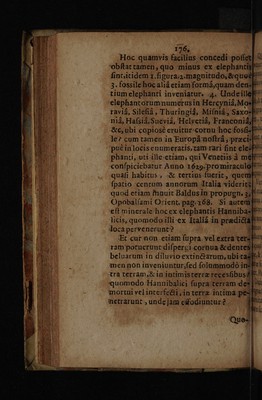 176.
Hoc quamvis facilius concedi posset
obstat tamen, quo minus ex elephantis
sint, itidem 1. figura, 2. magnitudo, & quod
3. fossile hoc aliâ etiam formâ, quam den-
tium elephanti inveniatur. 4. Unde ille
elephantorum numerus in Hercyniâ, Mo-
raviâ, Silesiâ, Thuringiâ, Misniâ, Saxo-
niâ, Hassiâ, Sueviâ, Helvetiâ, Franconiâ
&c, ubi copiosè eruitur cornu hoc fossi-
le? cum tamen in Europâ nostrâ, præci-
puè in locis enumeratis, tam rari sint ele-
phanti, uti ille etiam, qui Venetiis à me
conspiciebatur Anno 1629. pro miraculo
quasi habitus, & tertius fuerit, quem
spatio centum annorum Italia viderit;
quod etiam statuit Baldus in propugn.
Opobalsami Orient. pag. 168. Si autem
est minerale hoc ex elephantis Hanniba-
licis, quomodo illi ex Italiâ in prædicta
loca pervenerunt?
Et cur non etiam supra vel extra ter-
ram potuerunt dispergi cornua & dentes
belluarum in diluvio extinctarum, ubi ta-
men non inveniuntur, sed solummodò in-
tra terram, & in intimis terræ recessibus?
quomodo Hannibalici supra terram de-
mortui vel interfecti, in terræ intima pe-
netrarunt, unde jam effodiuntur?
Quo-